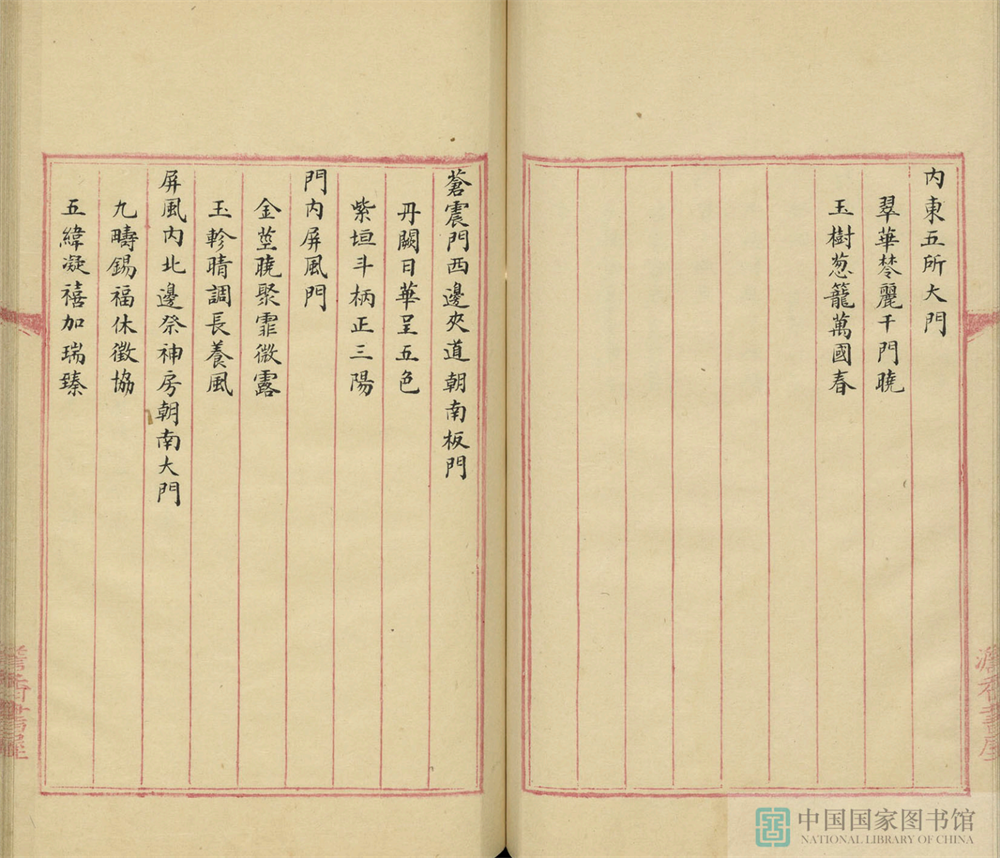 內東五所大門
翠華棽麗千門曉
玉樹葱籠萬國春
蒼震門西邊夾道朝南板門
丹闕日華呈五色
紫垣斗柄正三陽
門內屏風門
金莖曉聚霏微露
玉軫晴調長養風
屏風內北邊祭神房朝南大門
九疇錫福休徵協
五緯凝禧加瑞臻
中国国家图书馆
NATIONAL LIBRARY OF CHINA